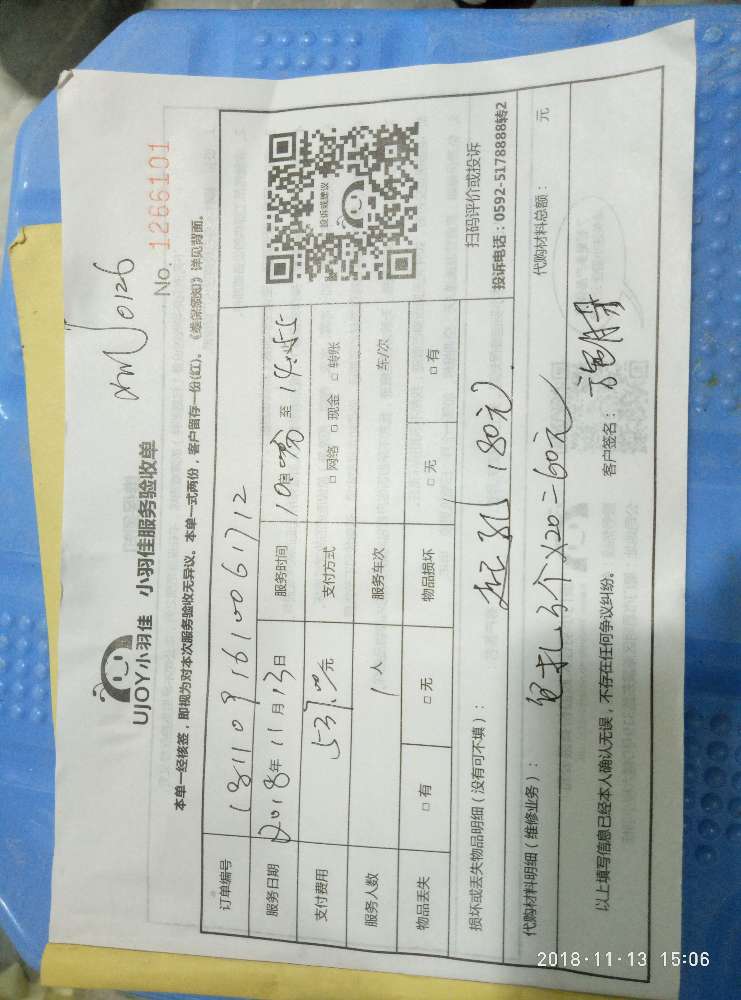 xmU0126
UJOY小羽佳 小羽佳服务验收单
No. 1266101
本单一经核签，即视为对本次服务验收无异议。本单一式两份，客户留存一份(红)。《维保须知》详见背面。
订单编号 1811091610061712
服务日期 2018年11月13日 服务时间 至
支付费用 537.00元 支付方式 □网络 □现金 □转账
服务人数 1人 服务车次 车/次
物品丢失 □有 □无 物品损坏 □无 □有
投诉或建议
扫码评价或投诉
投诉电话：0592-5178888转2
损坏或丢失物品明细（没有可不填）： 180元
代购材料明细（维修业务）： 3个×20=60元 代购材料总额： 元
以上填写信息已经本人确认无误，不存在任何争议纠纷。 客户签名：
2018·11·13 15:06